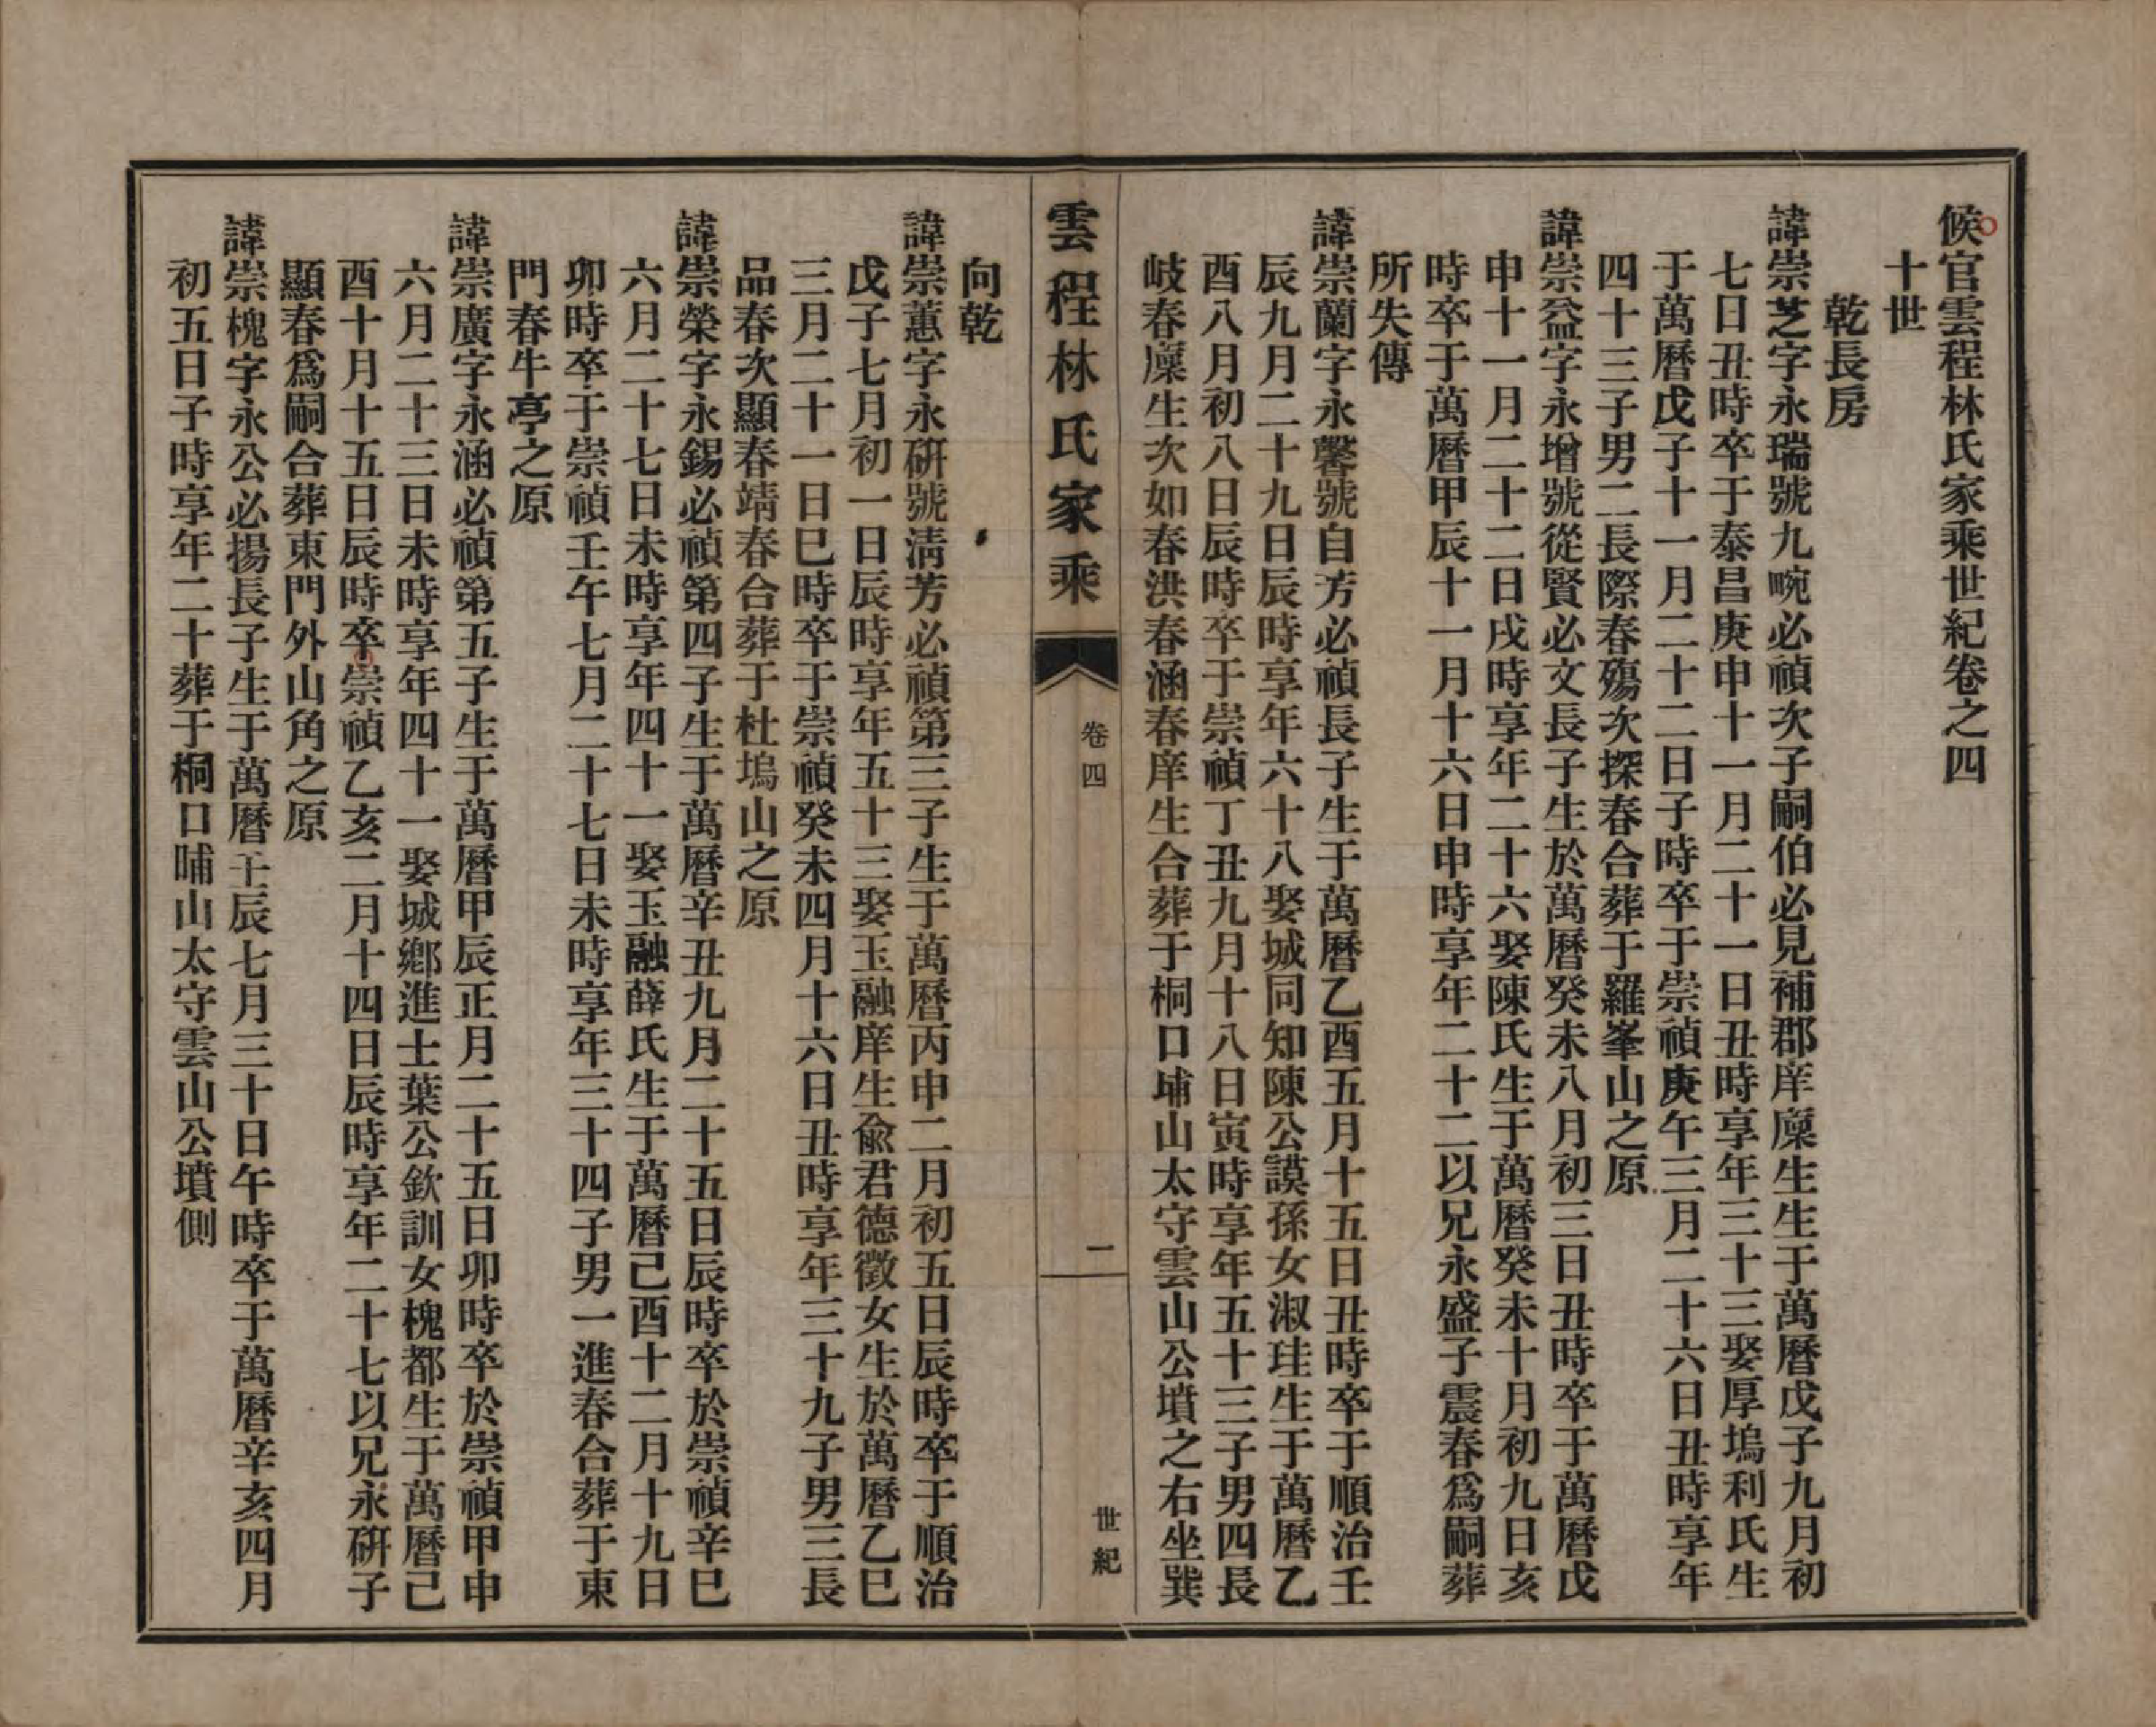 候官雲程林氏家乘世紀卷之四
十世
乾長房
諱崇芝字永瑞號九畹必禎次子嗣伯必見補郡庠廩生生于萬曆戊子九月初
七日丑時卒于泰昌庚申十一月二十一日丑時享年三十三娶厚塢利氏生
于萬曆戊子十一月二十二日子時卒于崇禎庚午三月二十六日丑時享年
四十三子男二長際春殤次探春合葬于羅峯山之原
諱崇益字永增號從賢必文長子生於萬曆癸未八月初三日丑時卒于萬曆戊
申十一月二十二日戌時享年二十六娶陳氏生于萬曆癸未十月初九日亥
時卒于萬曆甲辰十一月十六日申時享年二十二以兄永盛子震春爲嗣葬
所失傳
諱崇蘭字永馨號自芳必禎長子生于萬曆乙酉五月十五日丑時卒于順治壬
辰九月二十九日辰時享年六十八娶城同知陳公謨孫女淑珪生于萬曆乙
酉八月初八日辰時卒于崇禎丁丑九月十八日寅時享年五十三子男四長
岐春廩生次如春洪春涵春庠生合葬于桐口埔山太守雲山公墳之右坐巽
雲程林氏家乘
卷四
二
世紀
向乾
諱崇蕙字永硏號清芳必禎第三子生于萬曆丙申二月初五日辰時卒于順治
戊子七月初一日辰時享年五十三娶玉融庠生兪君德徵女生於萬曆乙巳
三月二十一日巳時卒于崇禎癸未四月十六日丑時享年三十九子男三長
品春次顯春靖春合葬于杜塢山之原
諱崇榮字永錫必禎第四子生于萬曆辛丑九月二十五日辰時卒於崇禎辛巳
六月二十七日未時享年四十一娶玉融薛氏生于萬曆己酉十二月十九日
卯時卒于崇禎壬午七月二十七日未時享年三十四子男一進春合葬于東
門春牛亭之原
諱崇廣字永涵必禎第五子生于萬曆甲辰正月二十五日卯時卒於崇禎甲申
六月二十三日未時享年四十一娶城鄉進士葉公欽訓女槐都生于萬曆己
酉十月十五日辰時卒崇禎乙亥二月十四日辰時享年二十七以兄永硏子
顯春爲嗣合葬東門外山角之原
諱崇槐字永公必揚長子生于萬曆壬辰七月三十日午時卒于萬曆辛亥四月
初五日子時享年二十葬于桐口哺山太守雲山公墳側